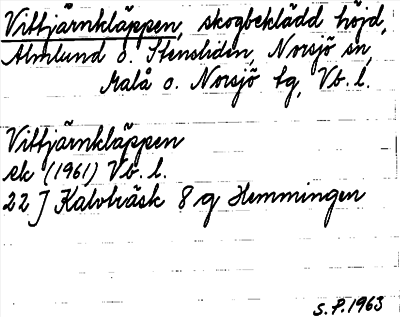 Vittjärnkläppen, skogbeklädd höjd,
Almlund o. Stensliden, Norsjö sn,
Malå o. Norsjö tg, Vb. l.
Vittjärnkläppen
ek (1961) Vb. l.
22 J Kalvträsk 8 g Hemmingen
S.P. 1963